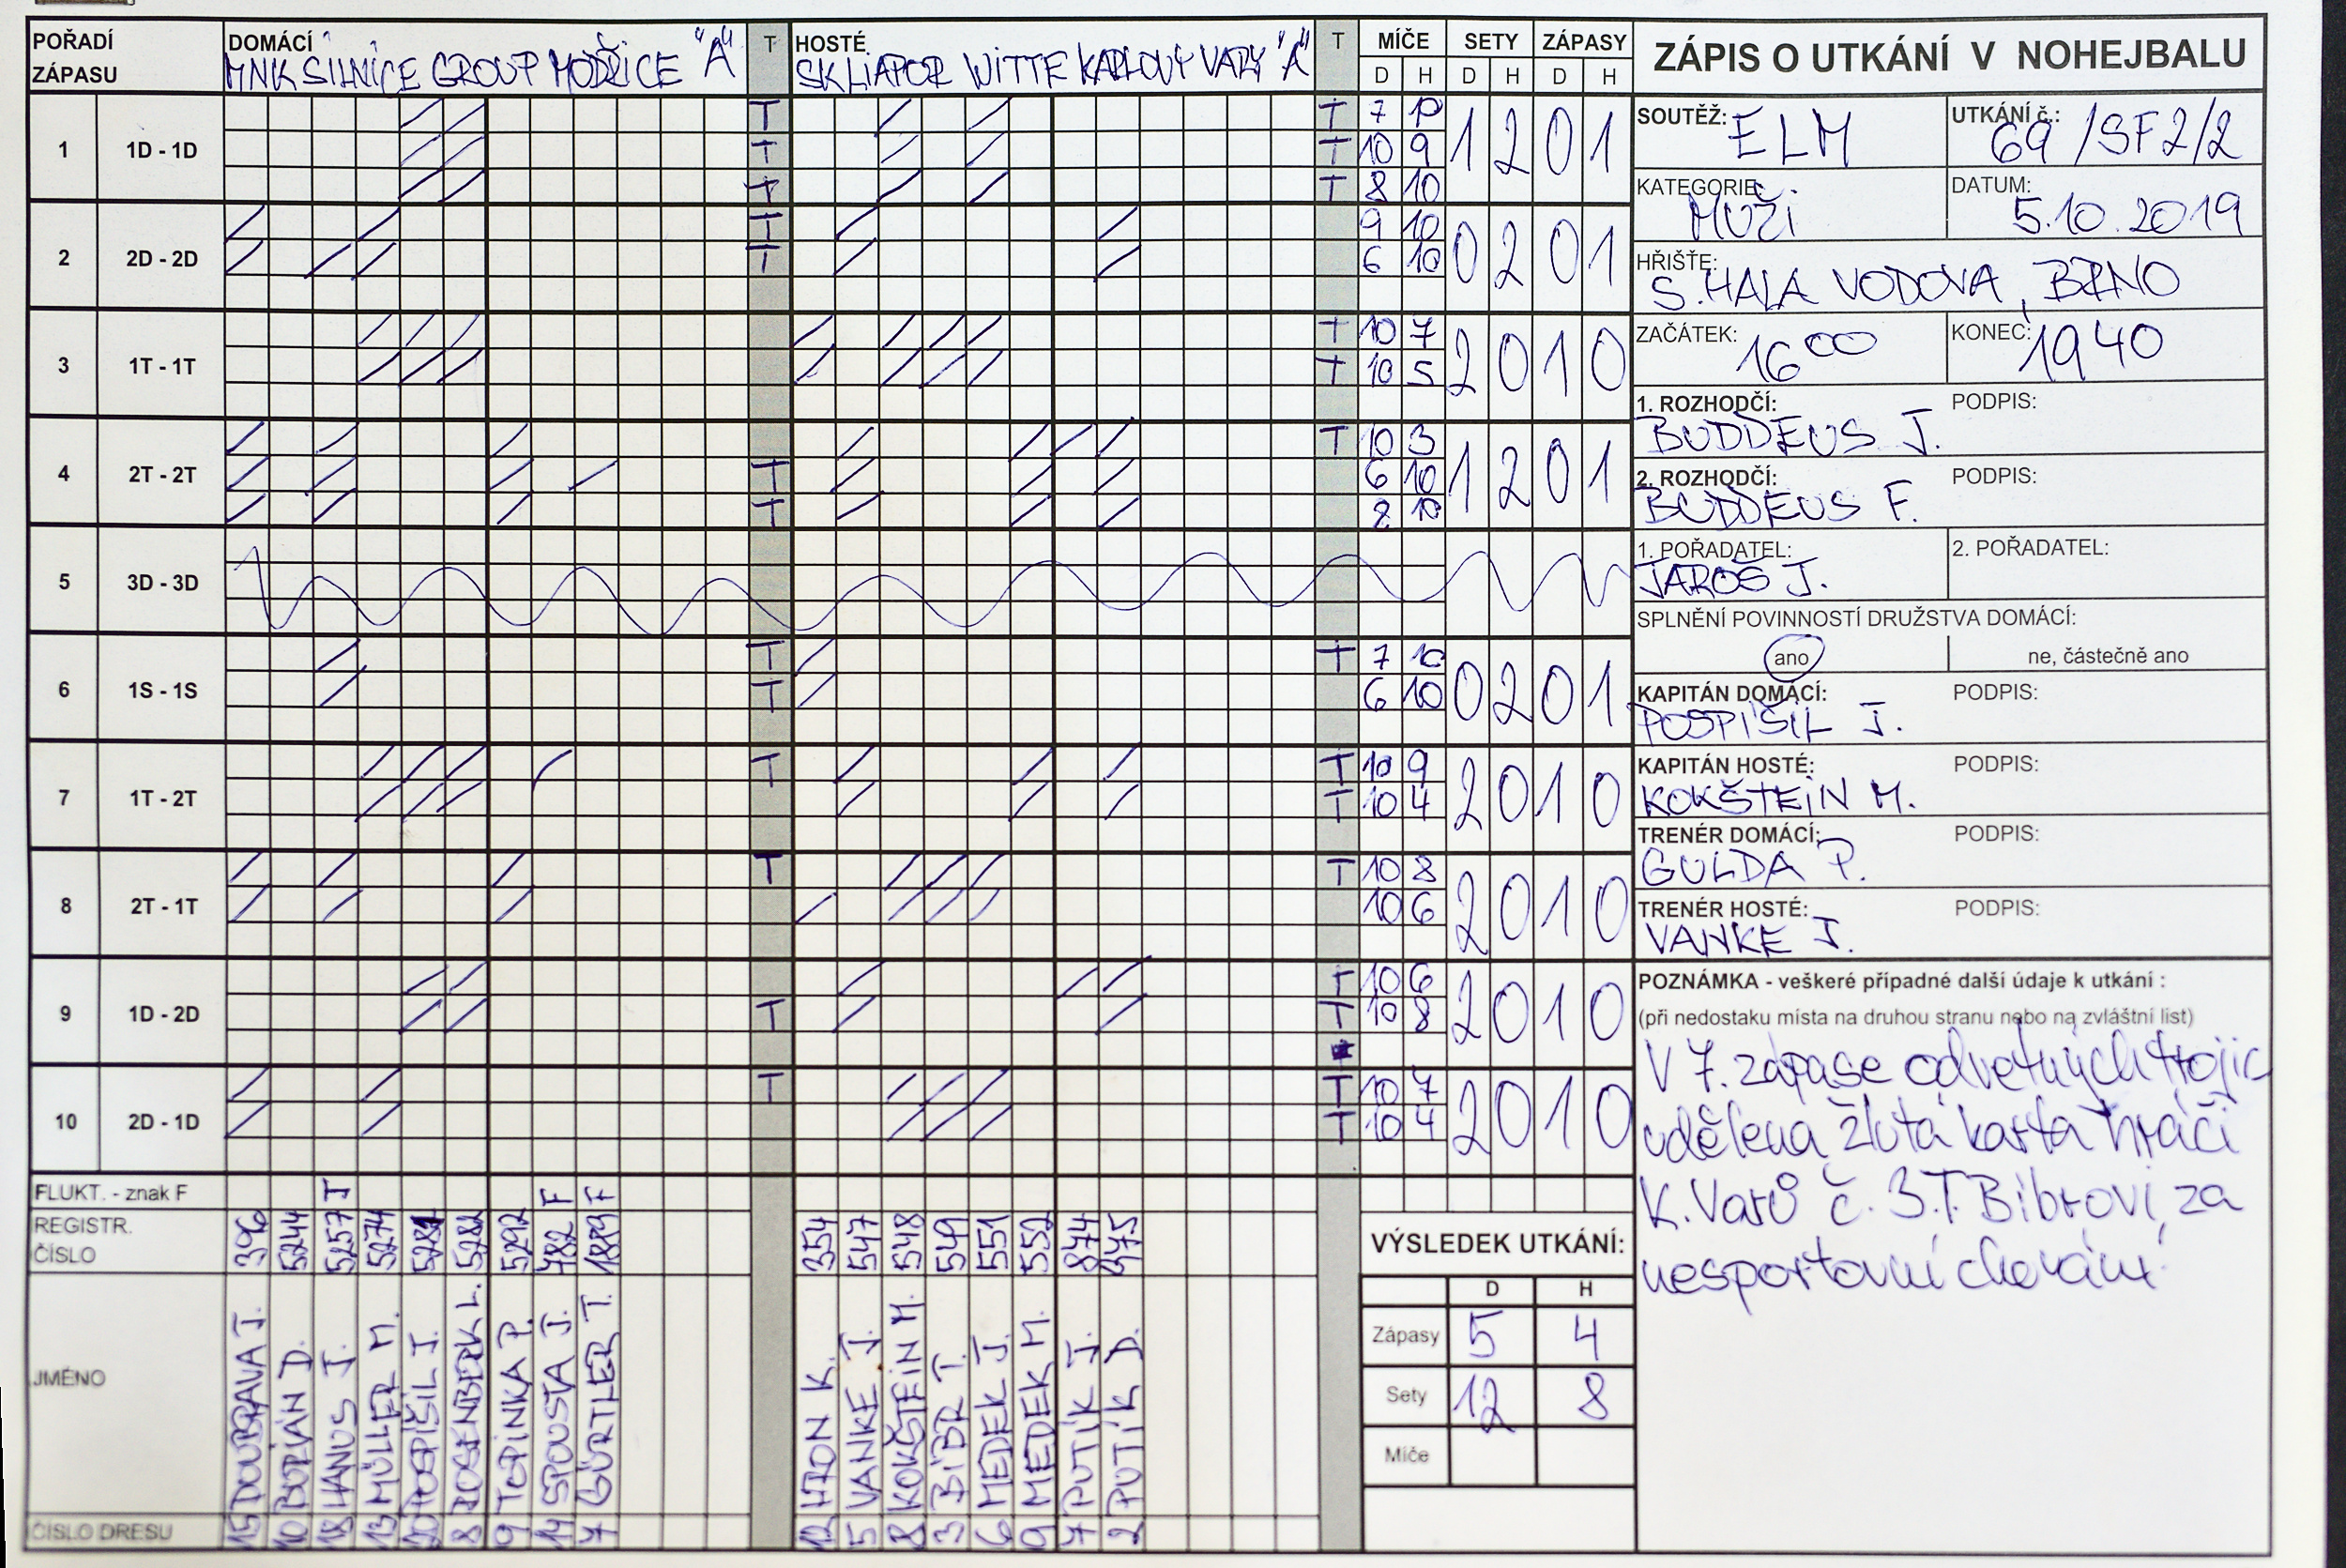 POŘADÍ ZÁPASU
DOMÁCÍ MNK SILNICE GROUP MODŘICE "A"
T
HOSTÉ SK LIAPOR WITTE KARLOVY VARY "A"
T
MÍČE SETY ZÁPASY
D H D H D H
1 1D - 1D T T 7 10 1 2 0 1
T T 10 9
T T 8 10
2 2D - 2D T 9 10 0 2 0 1
T 6 10
3 1T - 1T T 10 7 2 0 1 0
T 10 5
4 2T - 2T T 10 3 1 2 0 1
T 6 10
T 8 10
5 3D - 3D
6 1S - 1S T T 7 10 0 2 0 1
T 6 10
7 1T - 2T T T 10 9 2 0 1 0
T 10 4
8 2T - 1T T T 10 8 2 0 1 0
10 6
9 1D - 2D T 10 6 2 0 1 0
T T 10 8
10 2D - 1D T T 10 7 2 0 1 0
T 10 4
FLUKT. - znak F
REGISTR. ČÍSLO
JMÉNO
ČÍSLO DRESU
15 DOUBRAVA J. 396
10 BORIÁN D. 5244
18 HANUS J. 5257 T
13 MÜLLER M. 5274
POSPÍŠIL J.
8 ROSENBERK L. 5282
9 TOPINKA P. 5292
14 SPOUSTA J. 482 F
7 GÜRTLER T. 1889 F
12 HRON K. 354
5 VANKE J. 547
8 KOKŠTEIN M. 548
3 BÍBR T. 549
6 MEDEK J. 551
9 MEDEK M. 552
7 PUTÍK J. 874
2 PUTÍK D. 975
VÝSLEDEK UTKÁNÍ:
D H
Zápasy 5 4
Sety 12 8
Míče
ZÁPIS O UTKÁNÍ V NOHEJBALU
SOUTĚŽ: ELM
UTKÁNÍ č.: 69/SF2/2
KATEGORIE: MUŽI
DATUM: 5.10.2019
HŘIŠTĚ: S.HALA VODOVA, BRNO
ZAČÁTEK: 16 00
KONEC: 19 40
1. ROZHODČÍ: BUDDEUS J. PODPIS:
2. ROZHODČÍ: BUDDEUS F. PODPIS:
1. POŘADATEL: JAROŠ J. 2. POŘADATEL:
SPLNĚNÍ POVINNOSTÍ DRUŽSTVA DOMÁCÍ:
ano ne, částečně ano
KAPITÁN DOMÁCÍ: POSPÍŠIL J. PODPIS:
KAPITÁN HOSTÉ: KOKŠTEIN M. PODPIS:
TRENÉR DOMÁCÍ: GULDA P. PODPIS:
TRENÉR HOSTÉ: VANKE J. PODPIS:
POZNÁMKA - veškeré případné další údaje k utkání :
(při nedostaku místa na druhou stranu nebo na zvláštní list)
V 7. zápase odvetných trojic
udělena žlutá karta hráči
K.Varů č. 3.T.Bíbrovi, za
nesportovní chování